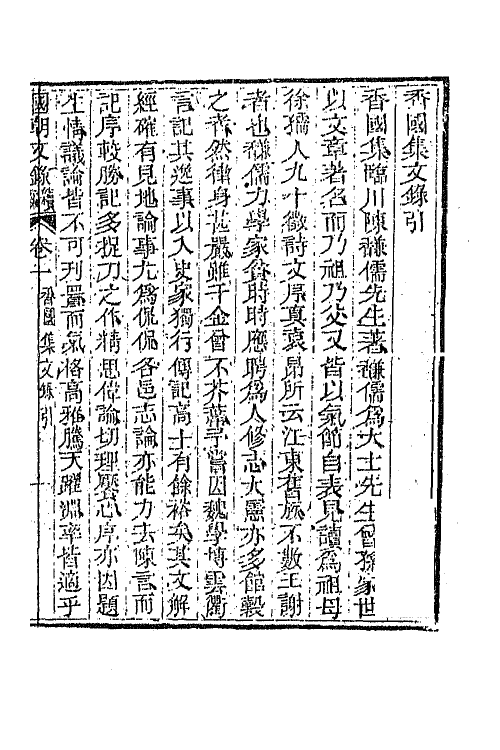 香國集文錄引
香國集臨川陳謙儒先生著謙儒爲大士先生曾孫家世
以文章著名而乃祖乃父又皆以氣節自表見讀爲祖母
徐孺人九十徵詩文序真袁昻所云江東舊族不數王謝
者也謙儒力學家食時時應聘爲人修志大憲亦多館穀
之者然律身甚嚴雖千金曾不芥蔕予嘗因魏學博雲衢
言記其逸事以入史家獨行傳記高士有餘裕矣其文解
經確有見地論事尤爲侃侃各邑志論亦能力去陳言而
記序較勝記多捉刀之作精思偉論切理饜心序亦因題
生情議論皆不可刋置而氣格高雅騰天躍淵率皆適乎
國朝文錄 卷一 香國集文錄引 一